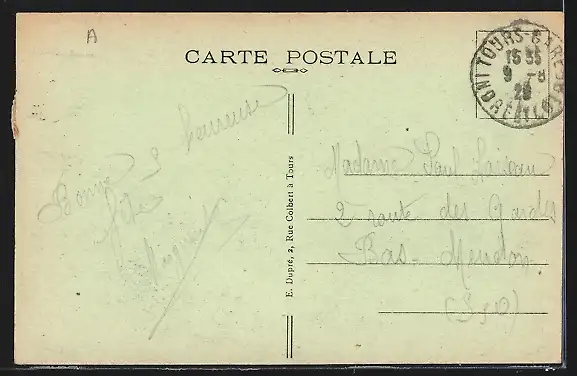 A
CARTE POSTALE
TOURS-GARE
15 35
9 -8
29
INDRE ET LOIRE
Bonne & heureuse
fête
E. Dupré, 2, Rue Colbert à Tours
Madame Paul
2 route des Gardes
Bas-Meudon
(S&O)